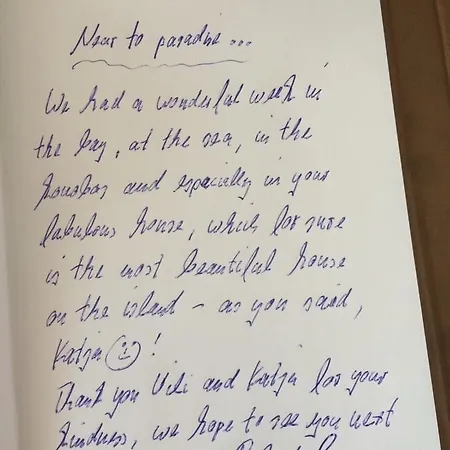 Near to paradise...
We had a wonderful week in
the bay, at the sea, in the
and espacially in your
fabulous house, which for sure
is the most beautiful house
on the island - as you said,
Katja ☺!
Thank you Vili and Katja for your
kindness, we hope to see you next